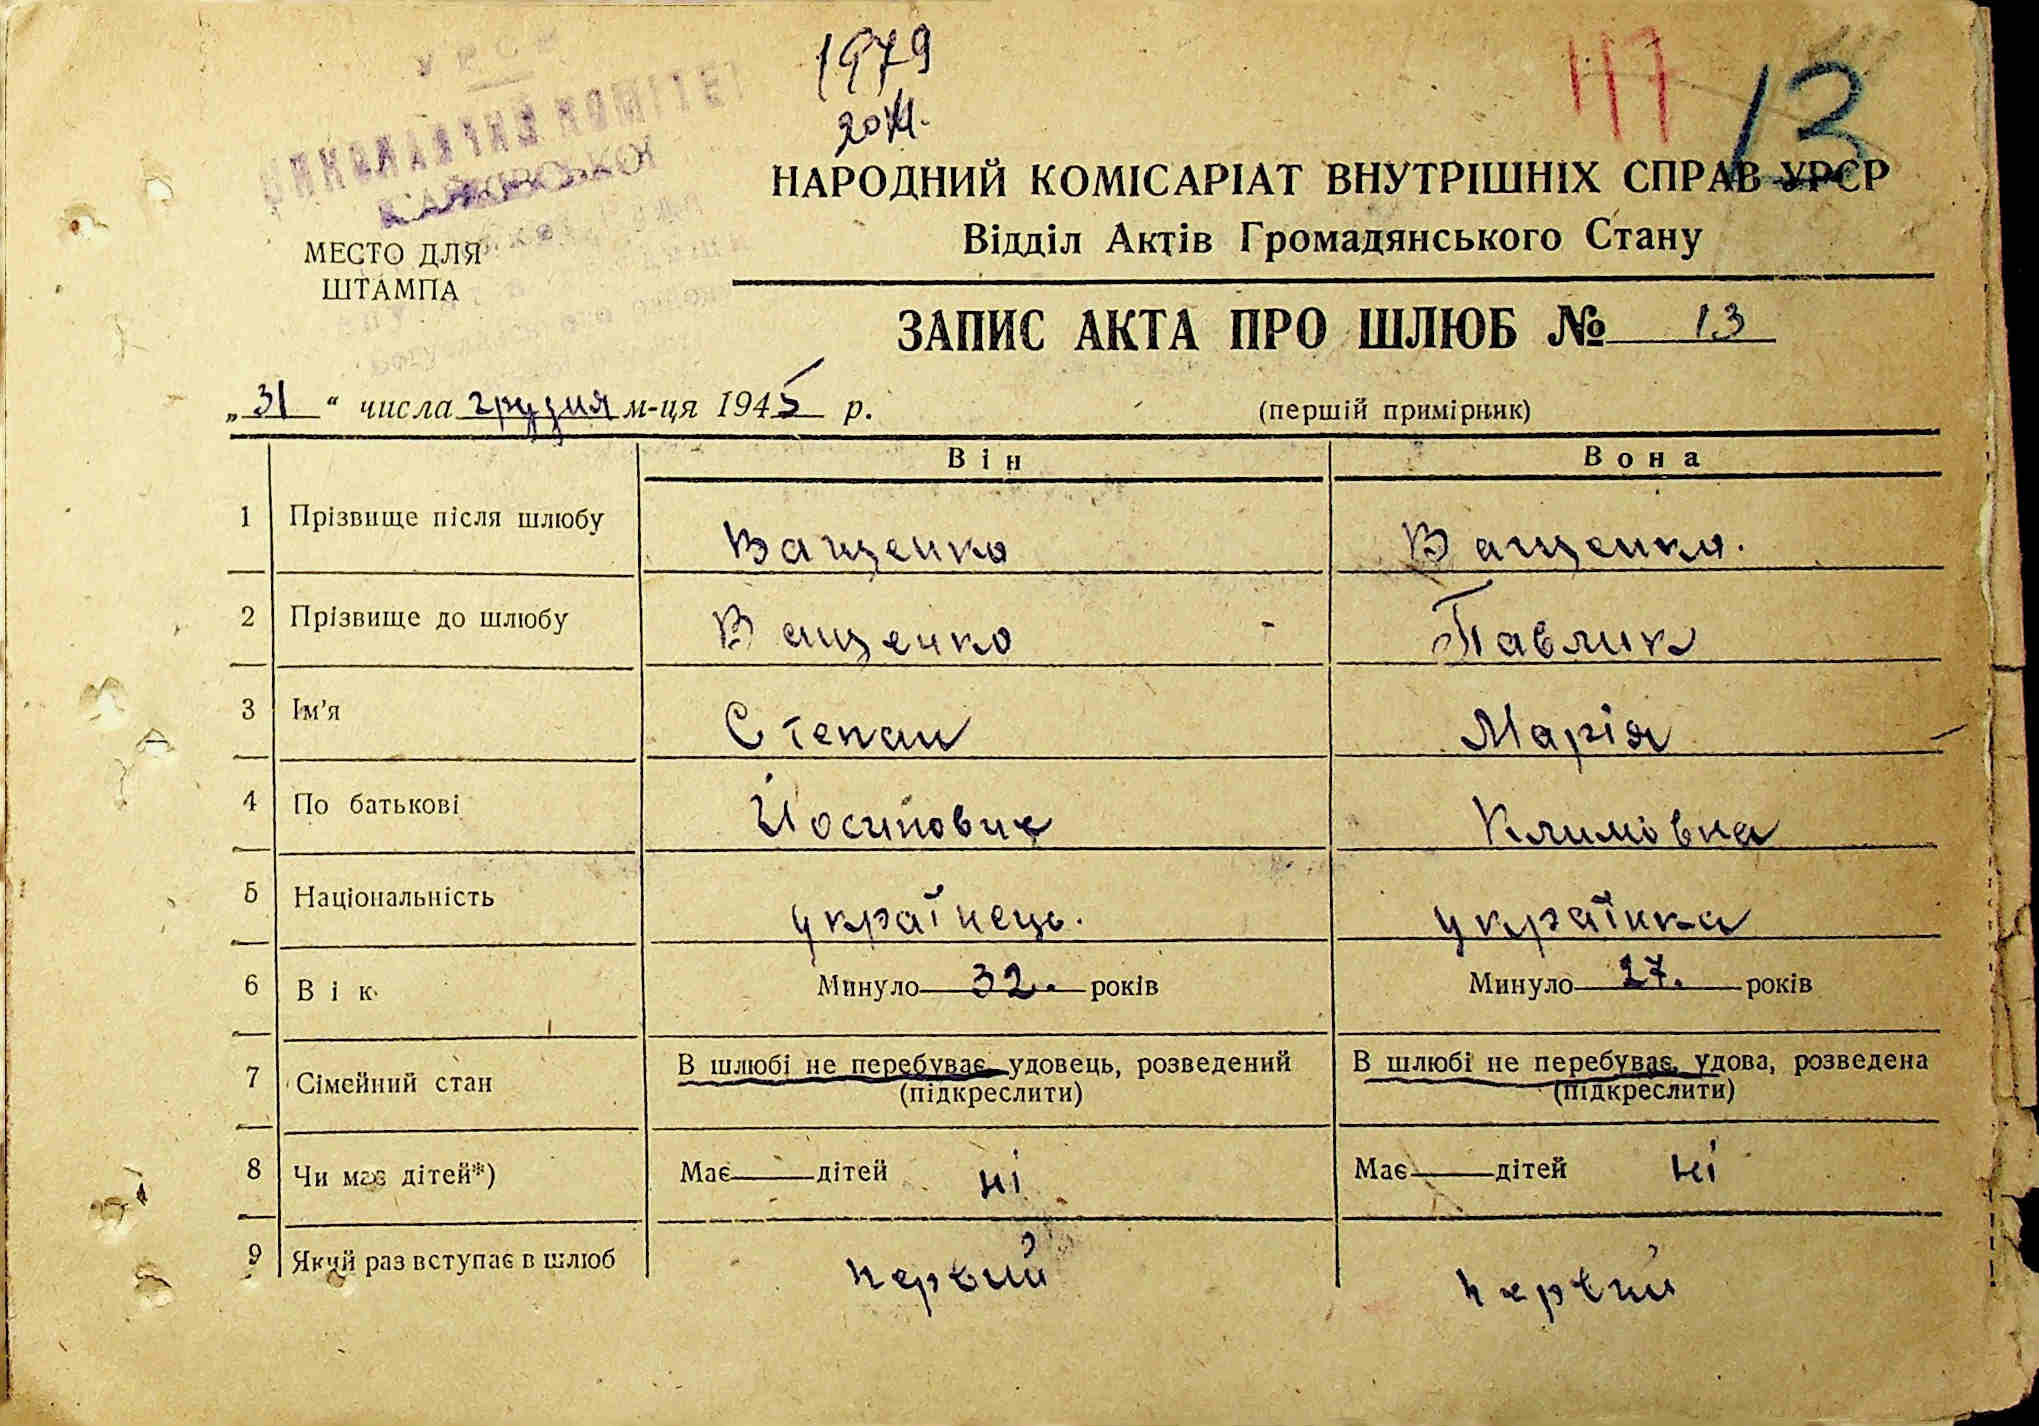 УРСР
1979
117
13
НАРОДНИЙ КОМІСАРІАТ ВНУТРІШНІХ СПРАВ УРСР
Відділ Актів Громадянського Стану
МЕСТО ДЛЯ
ШТАМПА
ЗАПИС АКТА ПРО ШЛЮБ № 13
„31“ числа грудня м-ця 1945 р.
(першій примірник)
Він Вона
1 Прізвище після шлюбу Ващенко Ващенко.
2 Прізвище до шлюбу Ващенко Павлик
3 Ім'я Степан Марія
4 По батькові Йосипович Климовна
5 Національність українець. українка
6 Вік Минуло 32. років Минуло 27. років
7 Сімейний стан В шлюбі не перебуває, удовець, розведений В шлюбі не перебуває, удова, розведена
(підкреслити) (підкреслити)
8 Чи має дітей*) Має дітей ні Має дітей ні
9 Який раз вступає в шлюб первий первий